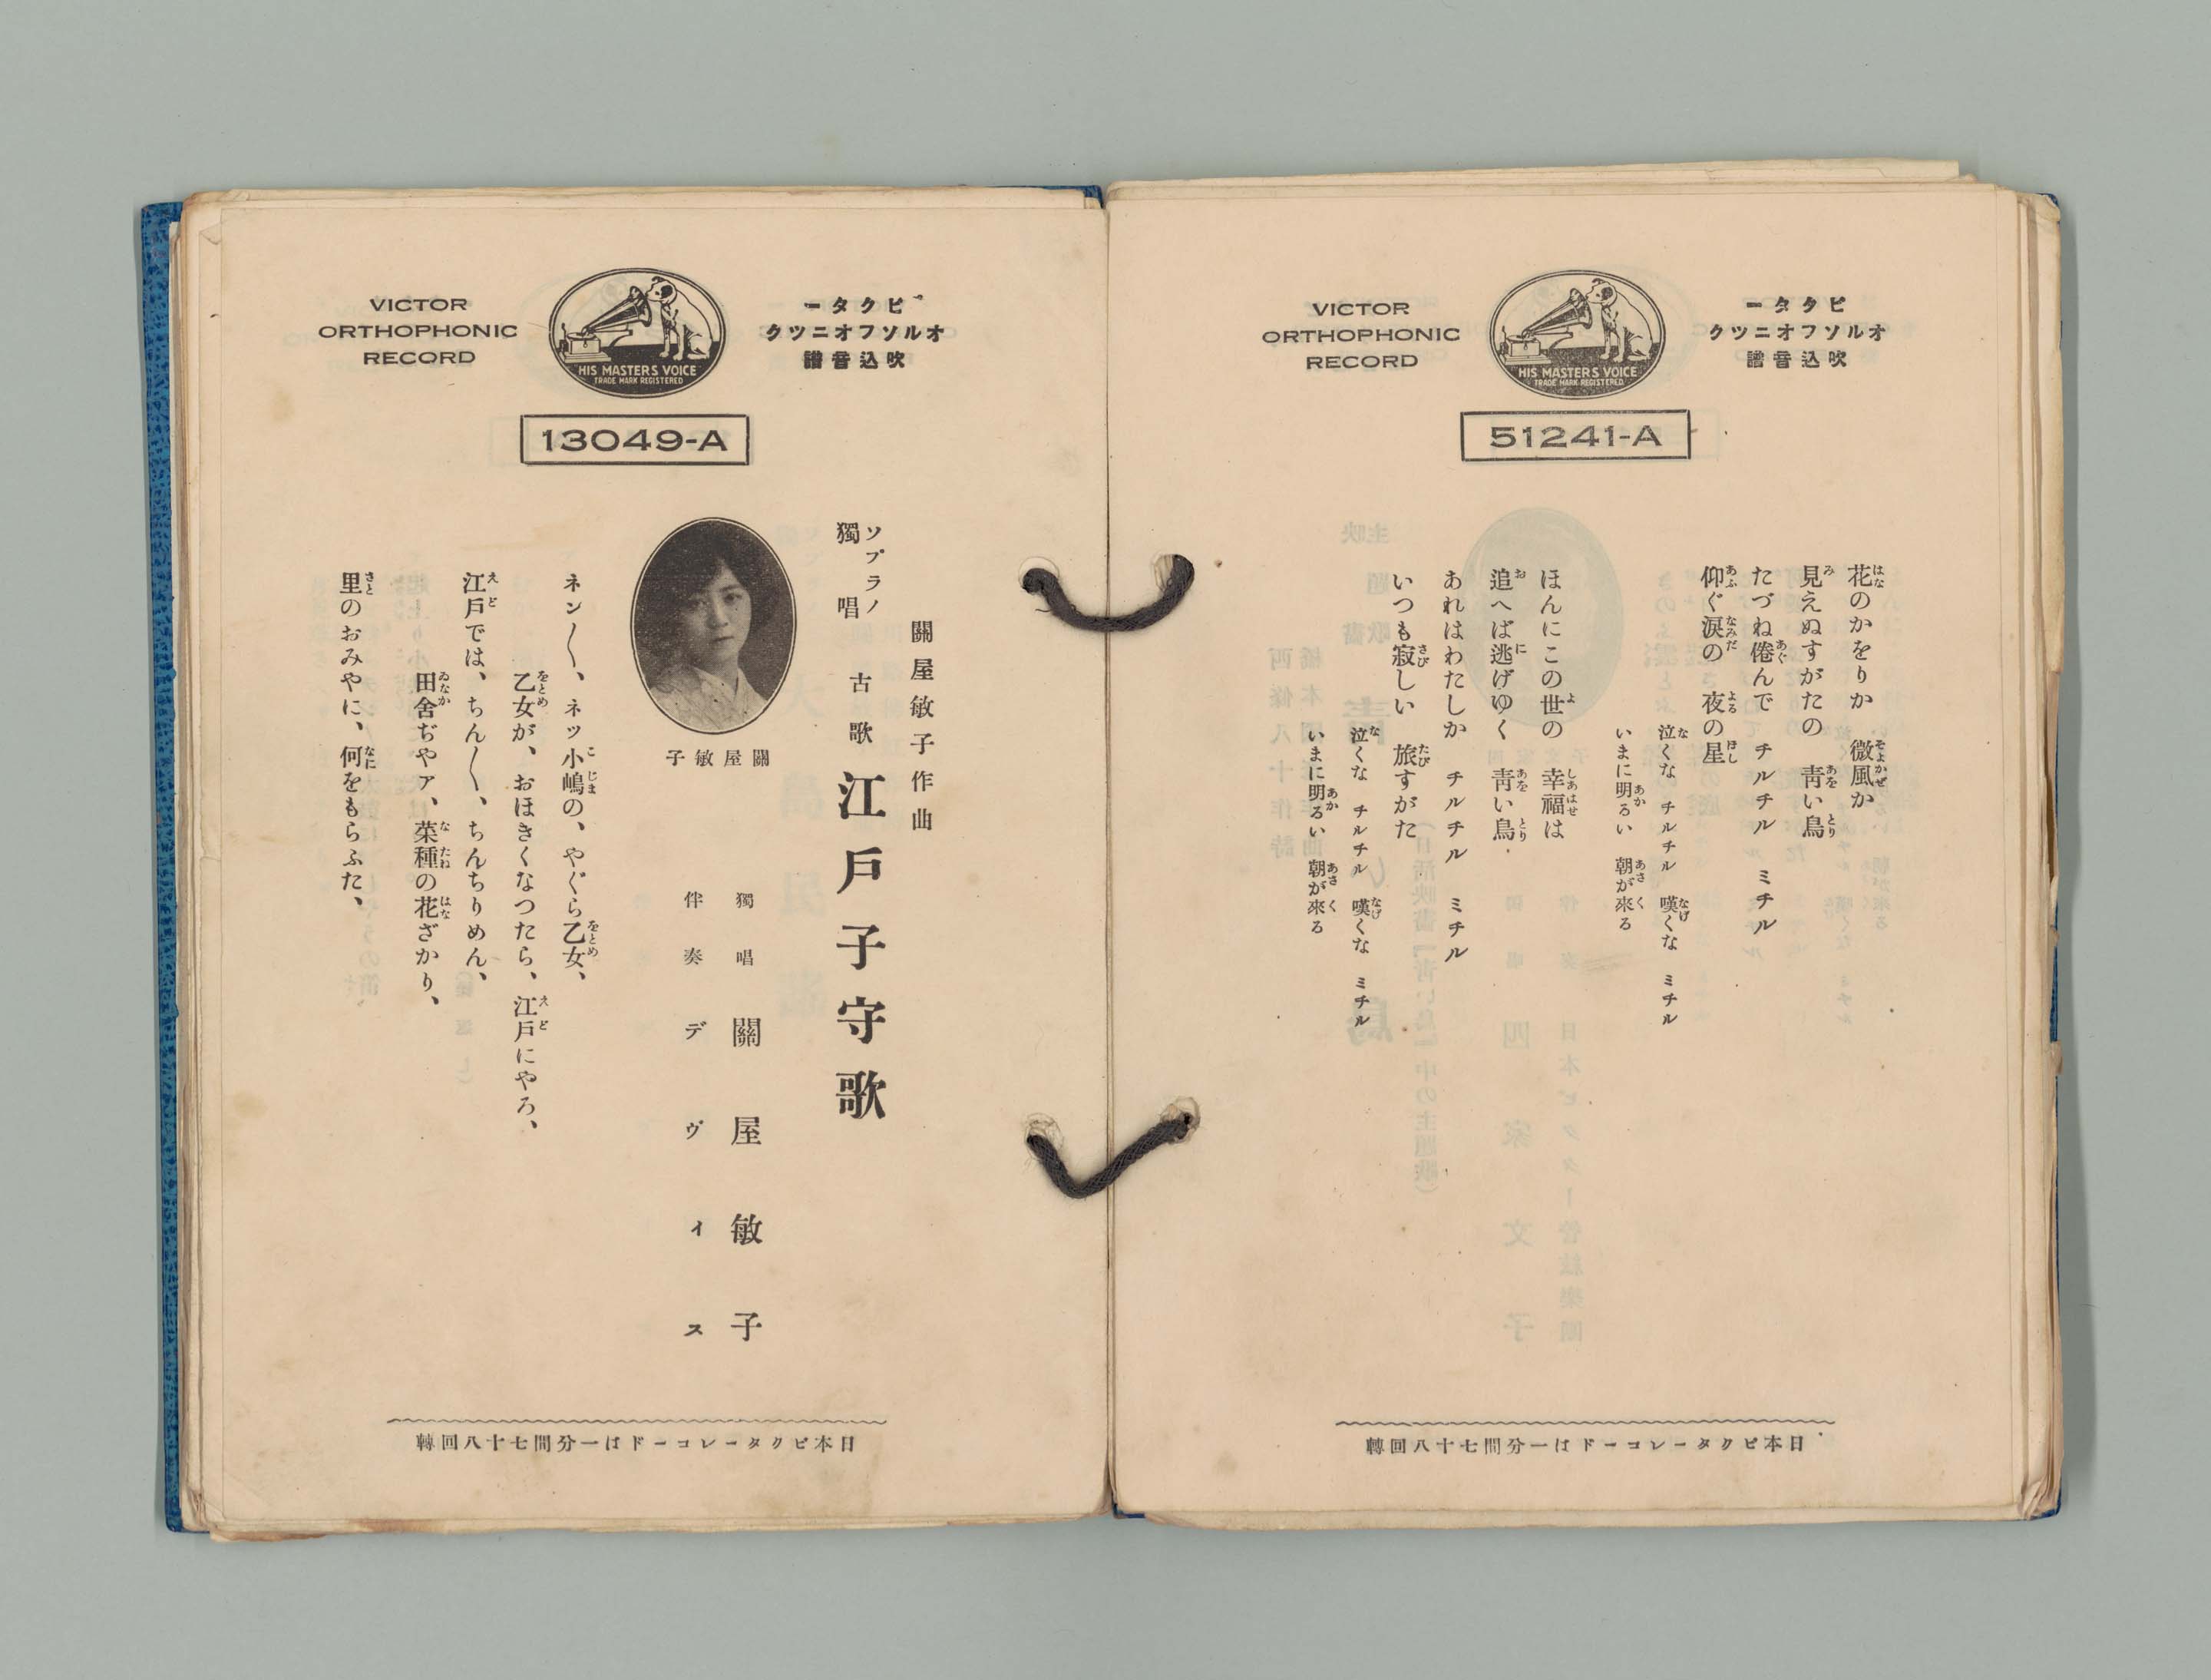 VICTOR
ORTHOPHONIC
RECORD
HIS MASTERS VOICE
TRADE MARK REGISTERED
ビクター
オルソフオニツク
吹込音譜
51241-A
花のかをりか　微風か
見えぬすがたの　靑い鳥
たづね倦んで　チルチル　ミチル
仰ぐ淚の　夜の星
泣くな　チルチル　嘆くな　ミチル
いまに明るい　朝が來る
ほんにこの世の　幸福は
追へば逃げゆく　靑い鳥
あれはわたしか　チルチル　ミチル
いつも寂しい　旅すがた
泣くな　チルチル　嘆くな　ミチル
いまに明るい　朝が來る
日本ビクターレコードは一分間七十八回轉
VICTOR
ORTHOPHONIC
RECORD
HIS MASTERS VOICE
TRADE MARK REGISTERED
ビクター
オルソフオニツク
吹込音譜
13049-A
關屋敏子作曲
ソプラノ
獨唱
古歌　江戶子守歌
關屋敏子
獨唱　關屋敏子
伴奏　デヴィス
ネン〱、ネッ小嶋の、やぐら乙女、
乙女が、おほきくなつたら、江戶にやろ、
江戶では、ちん〱、ちんちりめん、
田舍ぢやァ、菜種の花ざかり、
里のおみやに、何をもらふた、
日本ビクターレコードは一分間七十八回轉